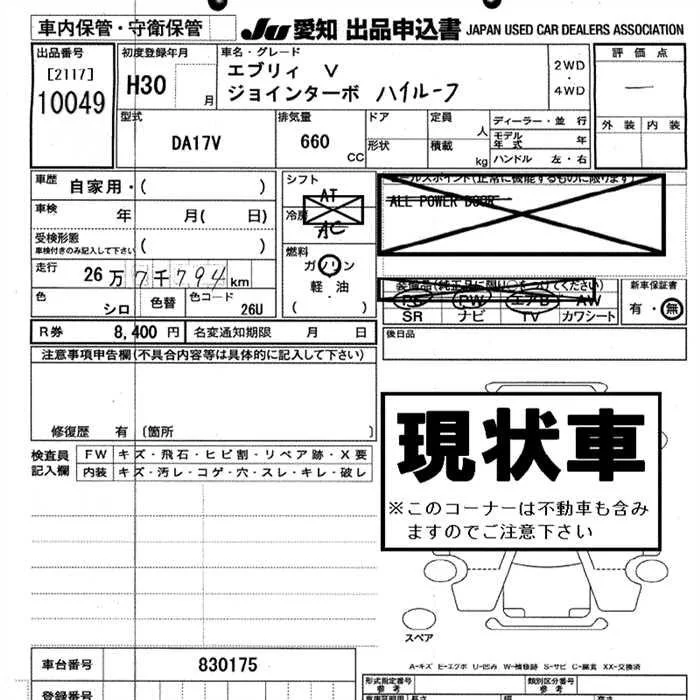 車内保管・守衛保管
JU 愛知 出品申込書 JAPAN USED CAR DEALERS ASSOCIATION
出品番号
[2117]
10049
初度登録年月
H30 月
車名・グレード
エブリィ V
ジョインターボ ハイルーフ
2WD
・
4WD
評価点
―
外装 内装
型式
DA17V
排気量
660 CC
ドア
形状
定員
人
積載
kg
ディーラー・並行
モデル年式 年
ハンドル 左・右
車歴
自家用・( )
車検
年 月( 日)
受検形態
車検付きのみ記入して下さい ( )
走行
26万7千794km
色
シロ
色替
色コード
26U
シフト
AT
冷房
AC
燃料
ガソリン
軽油・
( )
セールスポイント(正常に機能するものに限ります)
ALL POWER DOOR
装備品(純正品に限り○をつけてください)
PS PW エアB AW
SR ナビ TV カワシート
新車保証書
有・無
R券 8,400 円
名変通知期限 月 日
後日品
注意事項申告欄(不具合内容等は具体的に記入して下さい)
修復歴 有 〔箇所 〕
検査員記入欄
FW キズ・飛石・ヒビ割・リペア跡・X要
内装 キズ・汚レ・コゲ・穴・スレ・キレ・破レ
現状車
※このコーナーは不動車も含み
ますのでご注意下さい
スペア
A-キズ E-エクボ U-凹み W-補修跡 S-サビ C-腐食 XX-交換済
車台番号
830175
登録番号
形式指定番号
参考
類別区分番号
参考